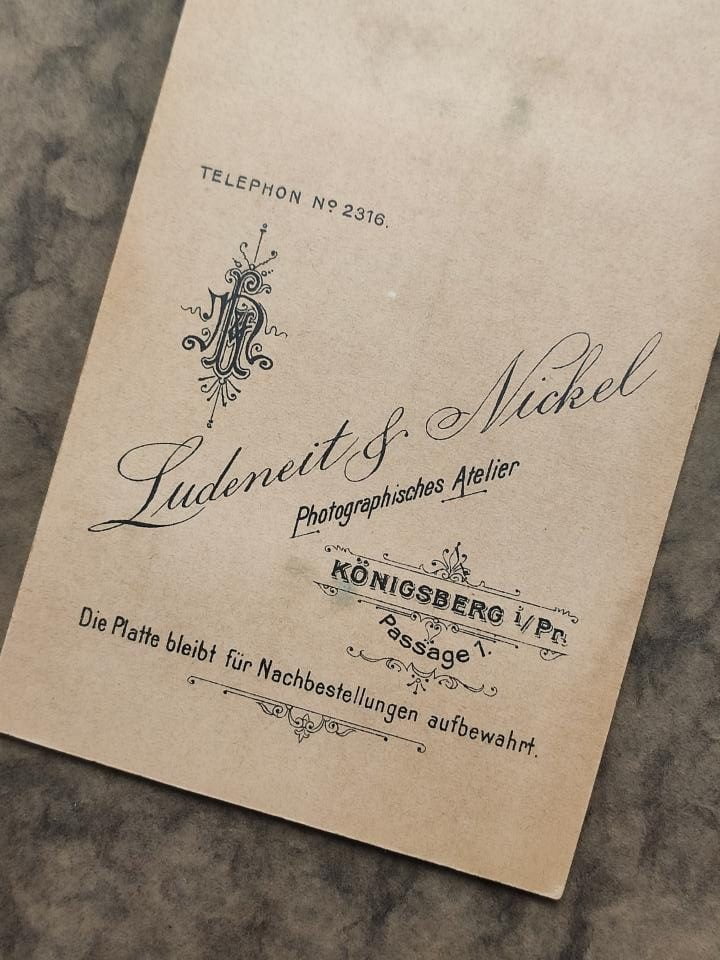 TELEPHON Nº 2316.
Ludeneit & Nickel
Photographisches Atelier
KÖNIGSBERG i/Pr.
Passage 1.
Die Platte bleibt für Nachbestellungen aufbewahrt.